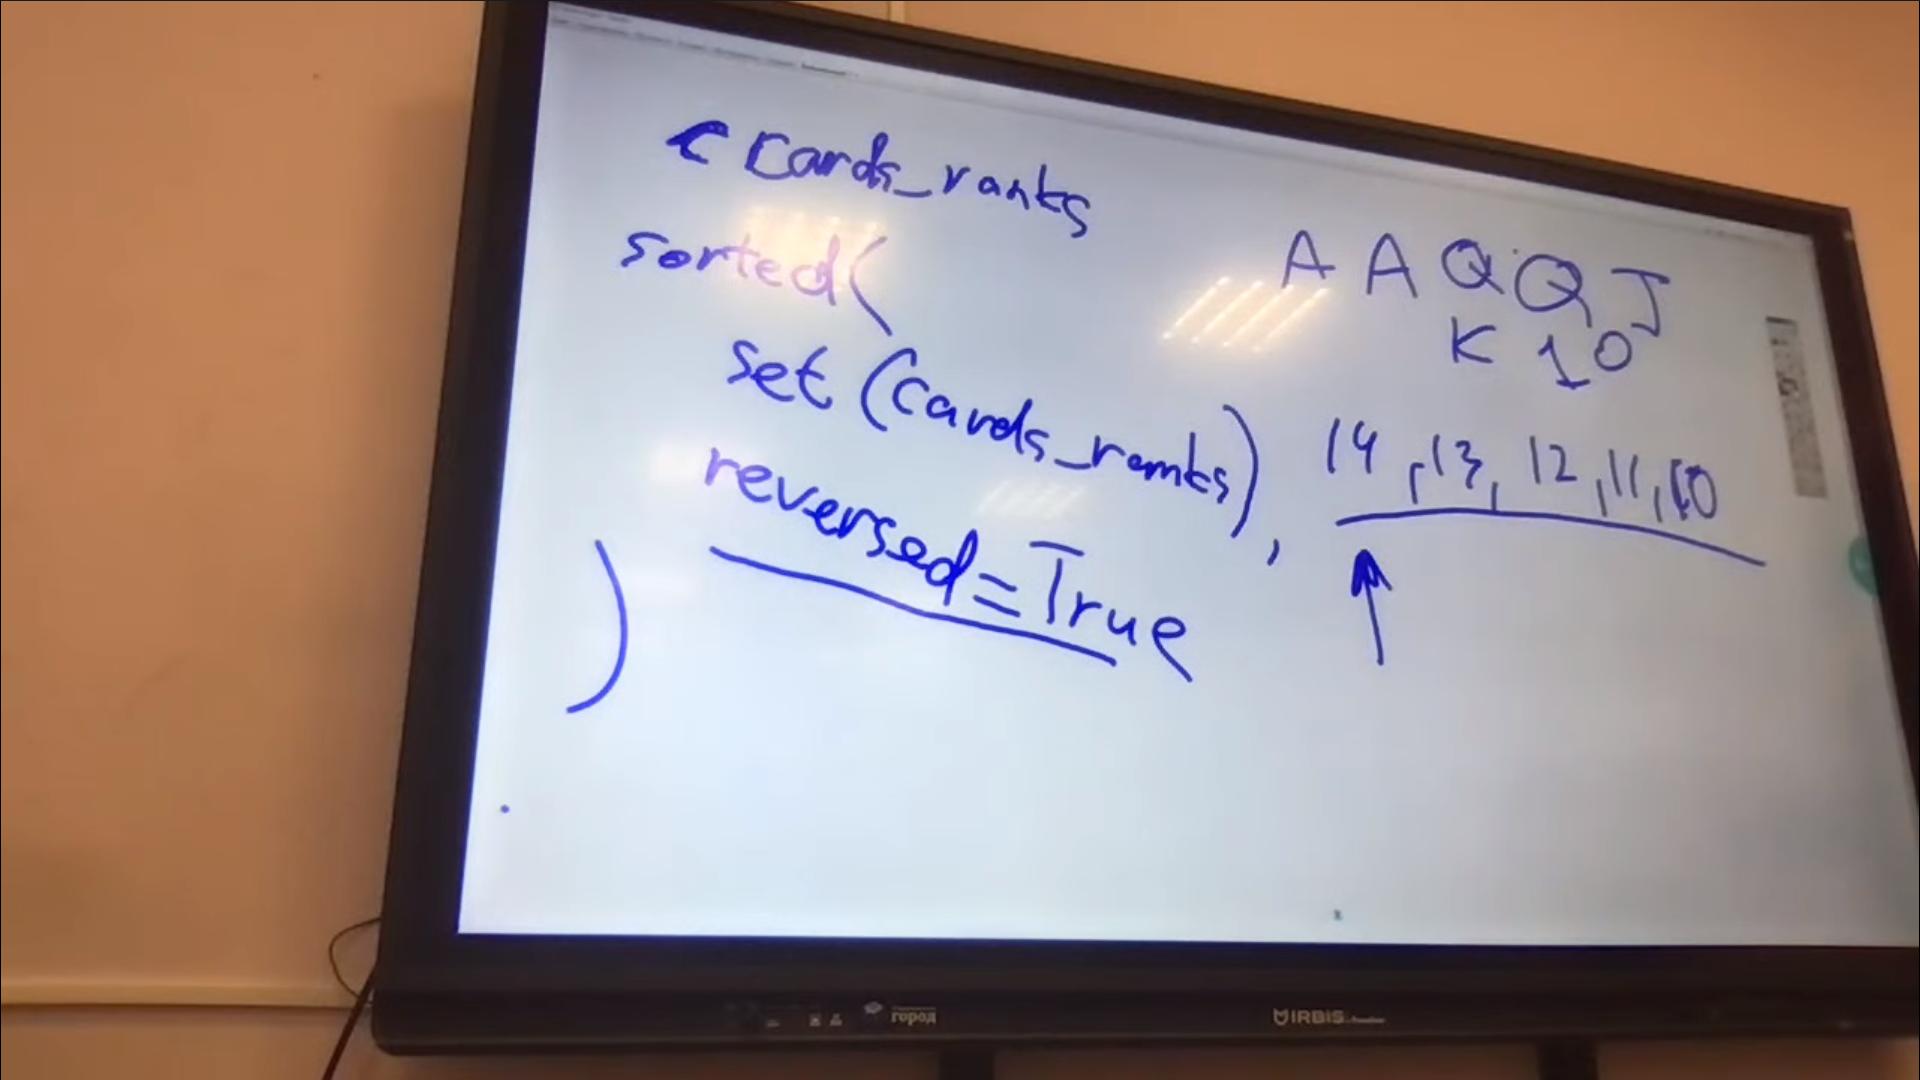 cards_ranks
sorted(
set (cards_ranks),
reversed=True
)
A A Q Q J
K 10
14, 13, 12, 11, 10
город
IRBIS